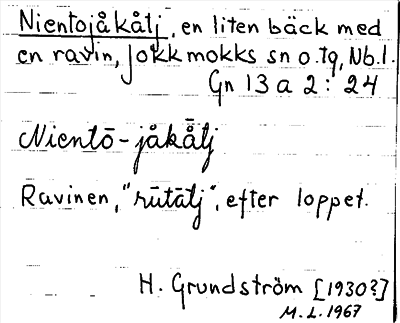 Nientojåkåtj, en liten bäck med
en ravin, Jokkmokks sn o. tg, Nb.l.
Gn 13 a 2: 24
Nientō-jåkåtj
Ravinen, "rūtātj", efter loppet.
H. Grundström [1930?]
M.L. 1967